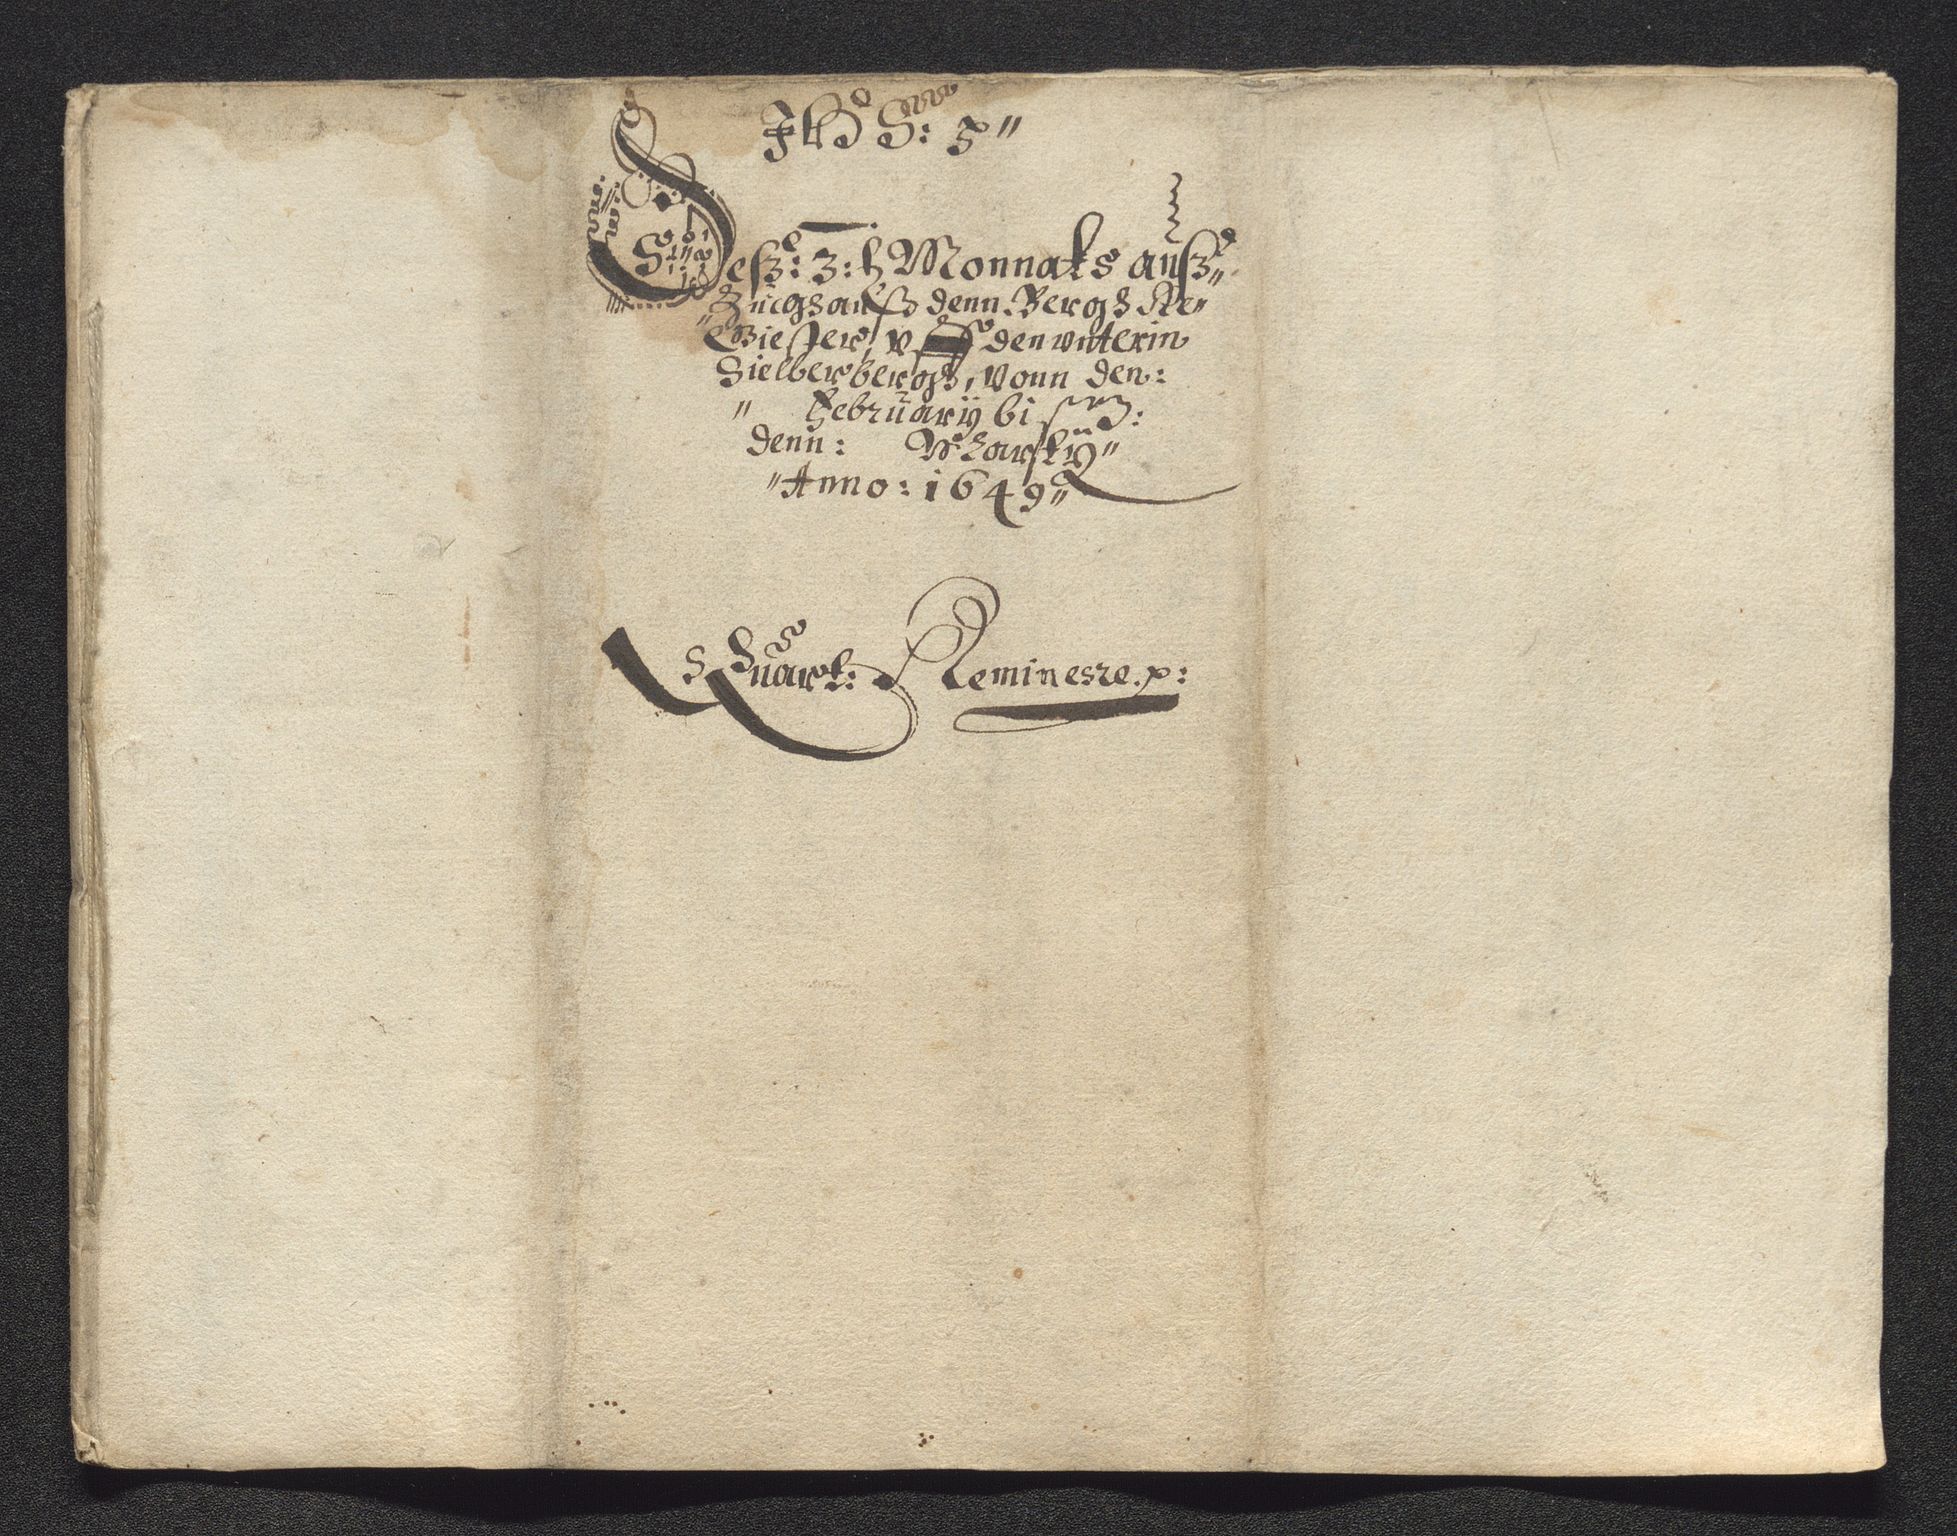 S: 5"
Desz: 3: t Monnats ausz"
Zuegs aufs denn Bergs Re"
"Giester, den unterin
Sielberbergs, vonn den:
" February bis:
denn: Marty"
"Anno: 1649"
S Quart: Reminescre. p: